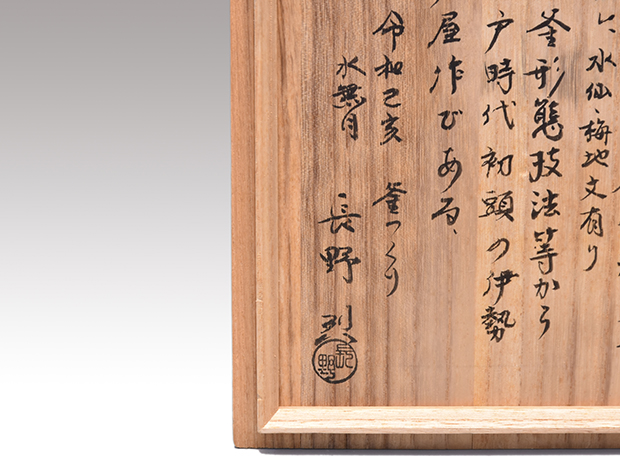 水仙、梅地文有り
釜形態技法等から
戸時代初頭の伊勢
屋作びある、
令和己亥
水無月
釜つくり
長野 烈
長野